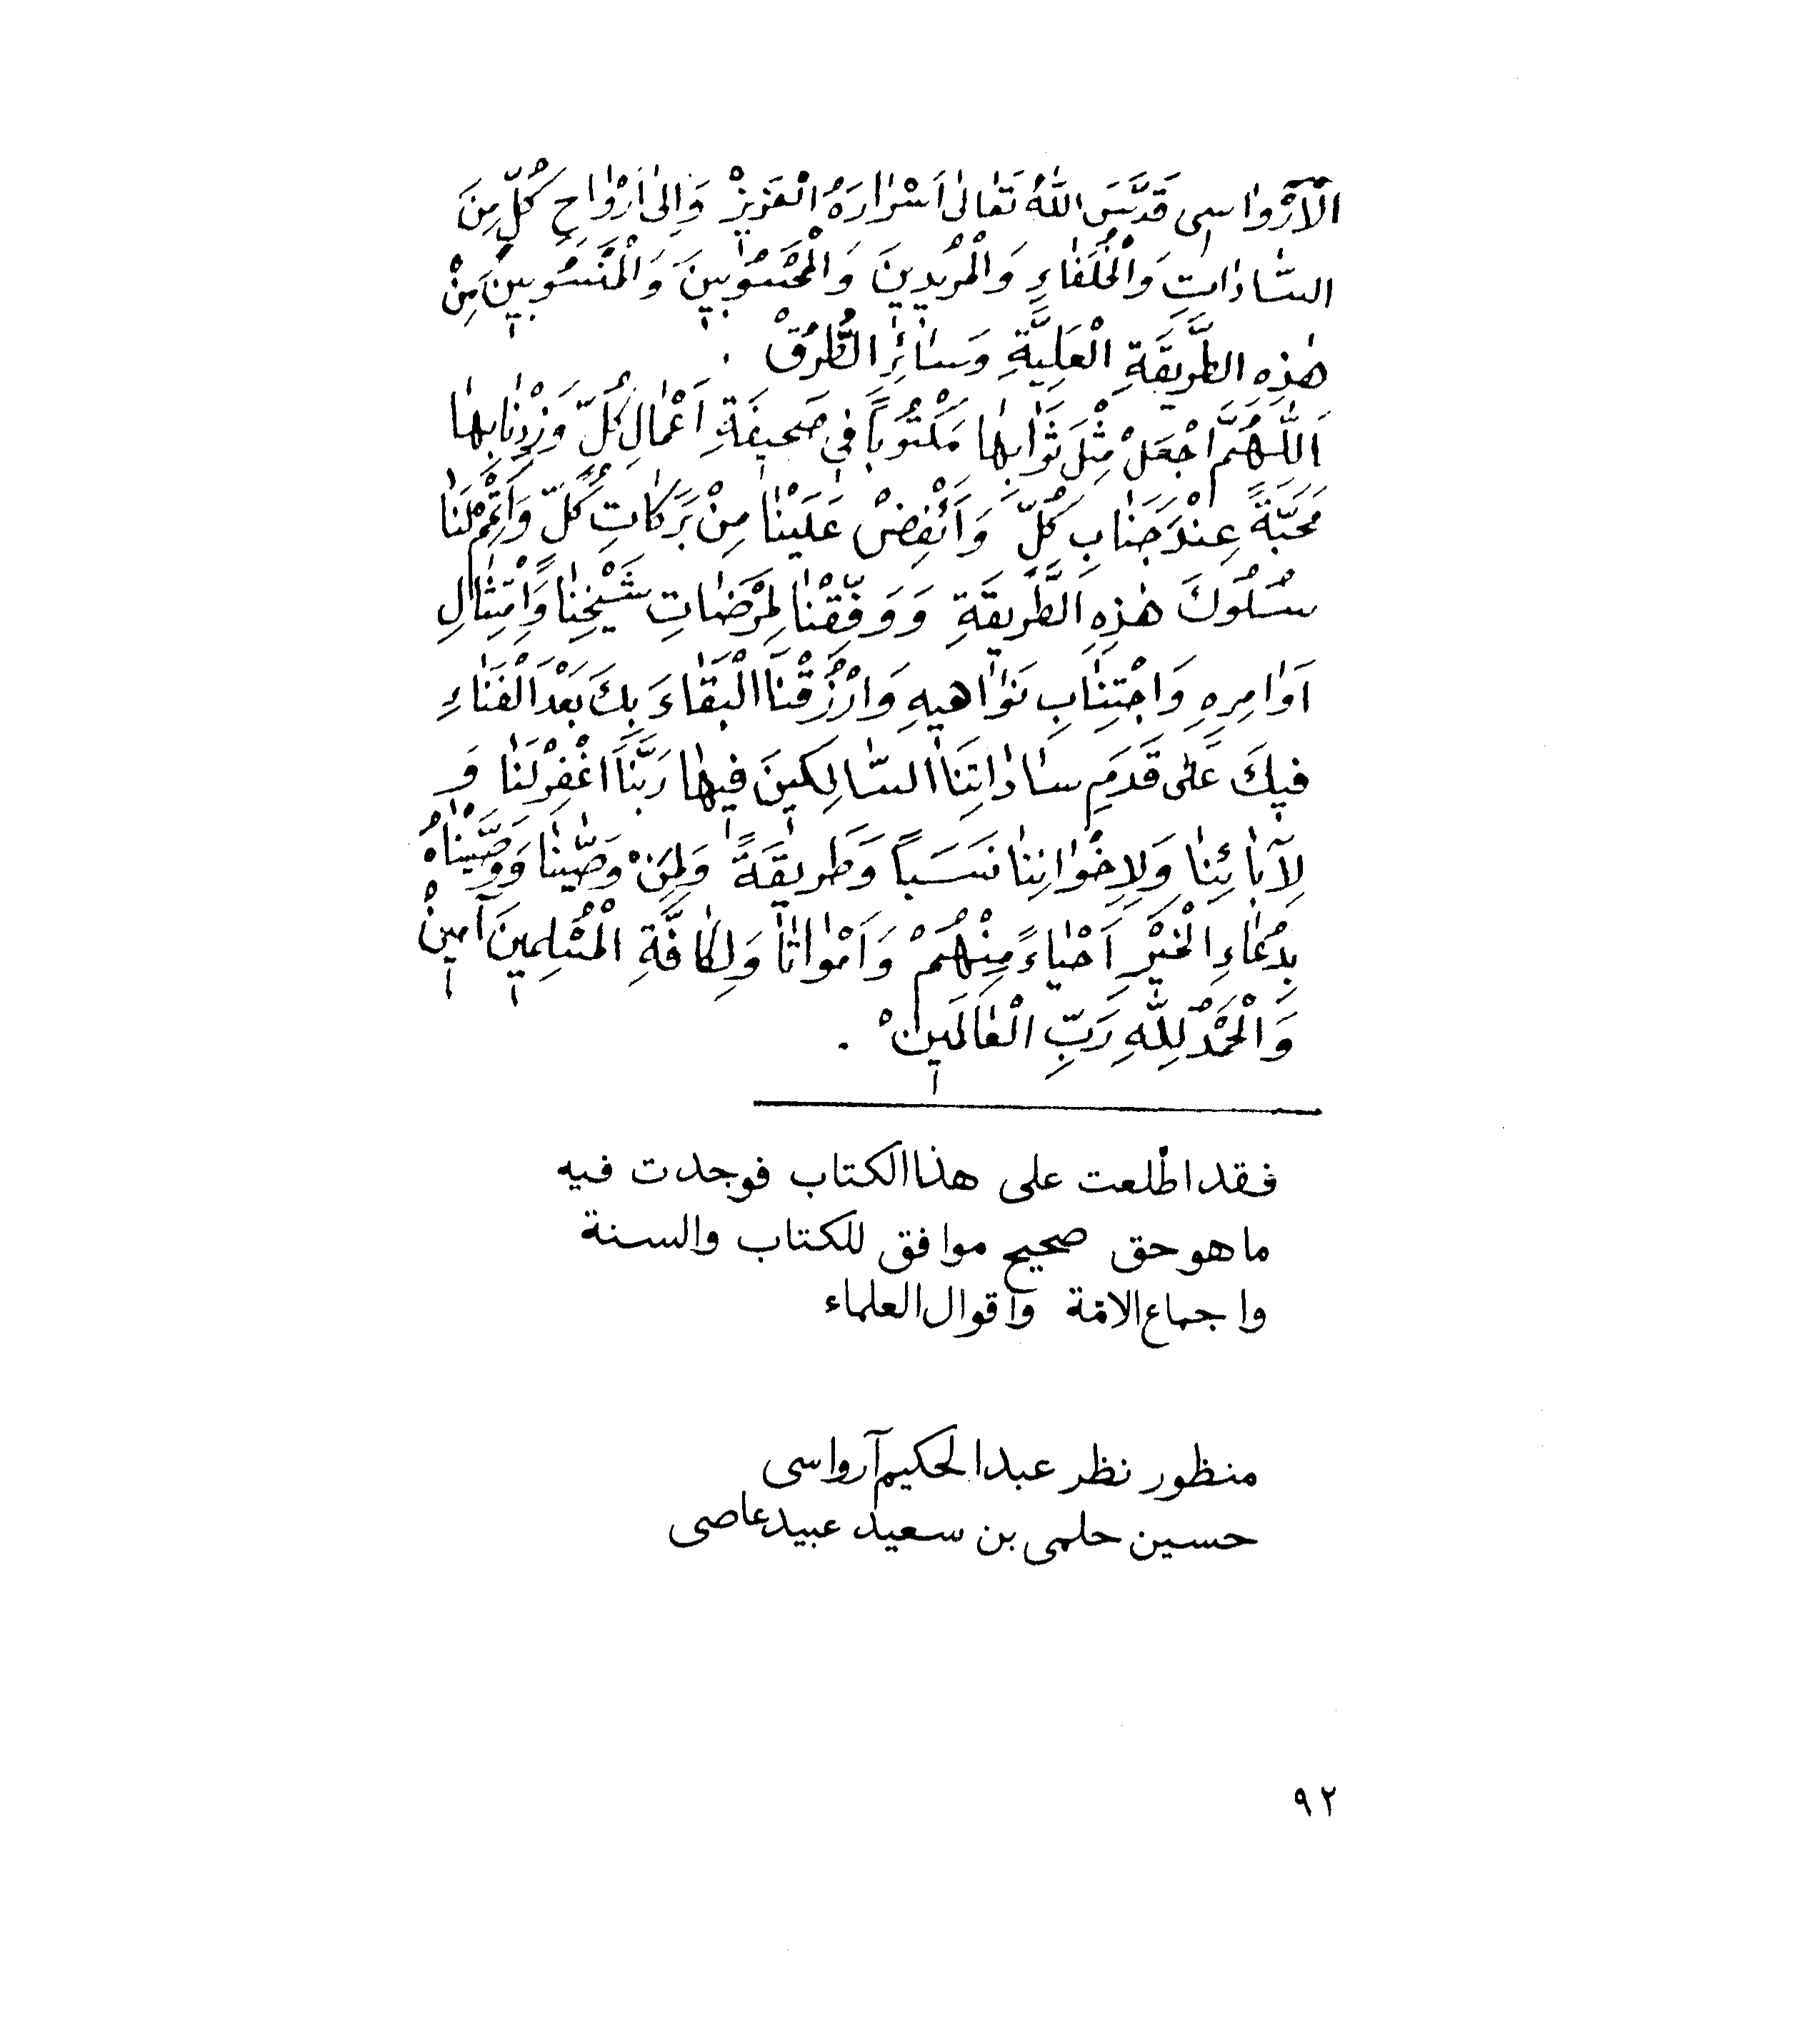 اَلْآرْوَاسِى قَدَّسَ اللّٰهُ تَعَالٰى اَسْرَارَهُ الْعَزِيزْ وَاِلٰى اَرْوَاحِ كُلٍّ مِنَ
السَّادَاتِ وَالْخُلَفَاءِ وَالْمُرِيدِينَ وَالْمَحْسُوبِينَ وَالْمَنْسُوبِينَ مِنْ
هٰذِهِ الطَّرِيقَةِ الْعَلِيَّةِ وَسَائِرِ الطُّرُقْ .
اَللّٰهُمَّ اجْعَلْ مِثْلَ ثَوَابِهَا مَكْتُوبًا فِى صَحِيفَةِ اَعْمَالِ كُلٍّ وَزِدْنَا بِهَا
مَحَبَّةً عِنْدَ جَنَابِ كُلٍّ وَاَفْضِضْ عَلَيْنَا مِنْ بَرَكَاتِ كُلٍّ وَاَتْمِمْ لَنَا
سُلُوكَ هٰذِهِ الطَّرِيقَةِ وَوَفِّقْنَا لِمَرْضَاتِ شَيْخِنَا وَامْتِثَالِ
اَوَامِرِهِ وَاجْتِنَابِ نَوَاهِيهِ وَارْزُقْنَا الْبَقَاءَ بِكَ بَعْدَ الْفَنَاءِ
فِيكَ عَلٰى قَدَمِ سَادَاتِنَا السَّالِكِينَ فِيهَا رَبَّنَا اغْفِرْ لَنَا وَ
لِآبَائِنَا وَلِاِخْوَانِنَا نَسَبًا وَطَرِيقَةً وَلِمَنْ وَصَّيْنَا وَوَصَّيْنَاهُ
بِدُعَاءِ الْخَيْرِ اَحْيَاءً مِنْهُمْ وَاَمْوَاتًا وَلِكَافَّةِ الْمُسْلِمِينَ آمِينْ
وَالْحَمْدُ لِلّٰهِ رَبِّ الْعَالَمِينْ .
فقد اطّلعت على هذا الكتاب فوجدت فيه
ما هو حق صحيح موافق للكتاب والسنة
واجماع الامّة واقوال العلماء
منظور نظر عبد الحكيم آرواسى
حسين حلمى بن سعيد عبيد عاصى
٩٢